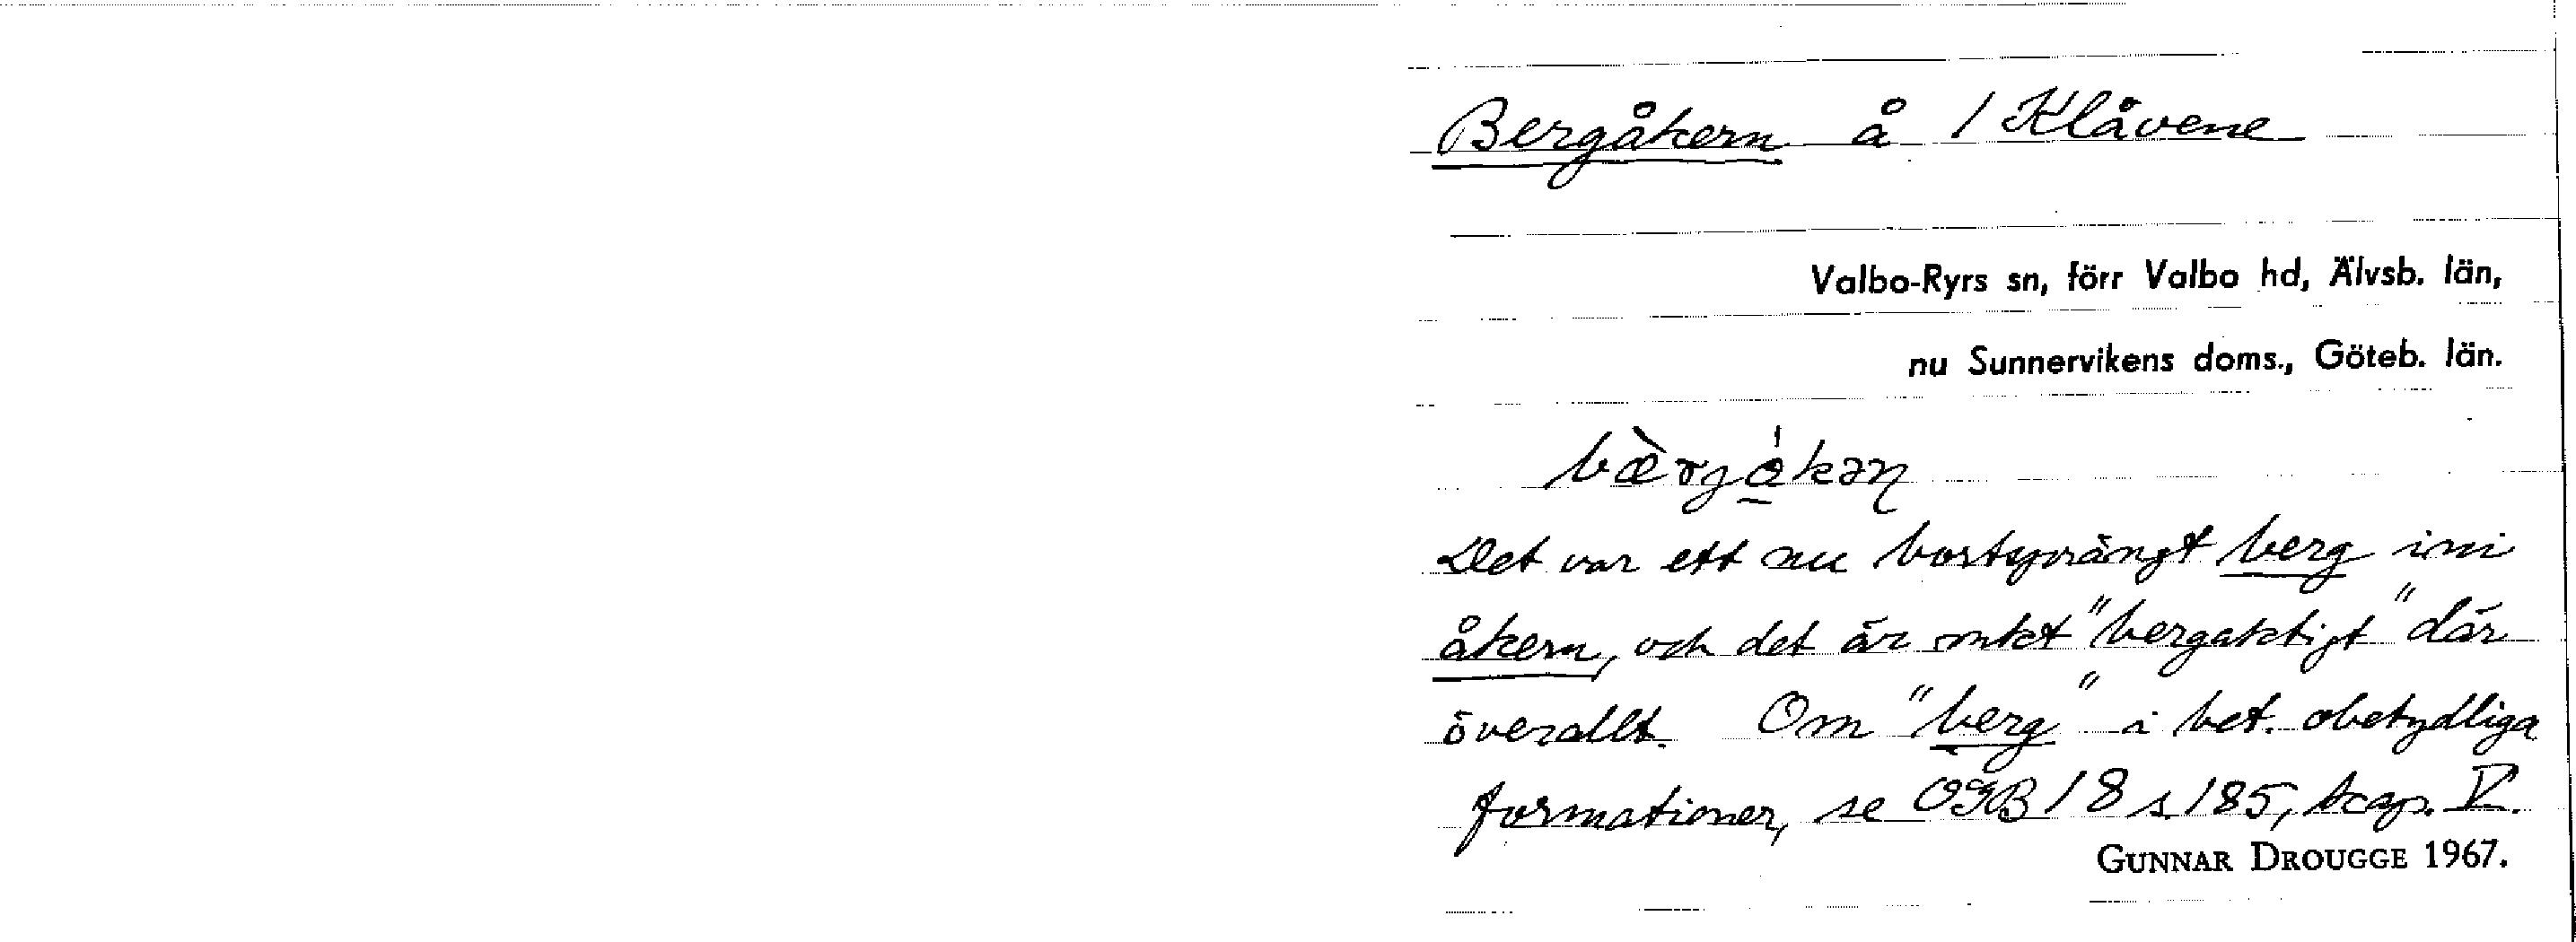 Bergåkern å 1 Klåvene
Valbo-Ryrs sn, förr Valbo hd, Älvsb. län,
nu Sunnervikens doms., Göteb. län.
Det var ett nu bortsprängt berg ini
åkern, och det är mkt "bergaktigt" där
överallt. Om "berg" i bet. obetydliga
formationer, se OGB 18 s. 185, kap. V.
GUNNAR DROUGGE 1967.